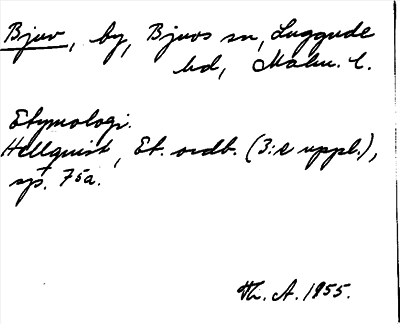 Bjuv, by, Bjuvs sn, Luggude
hd, Malm. l.
Etymologi.
Hellquist, Et. ordb. (3:e uppl.),
sp. 75a.
Th. A. 1955.